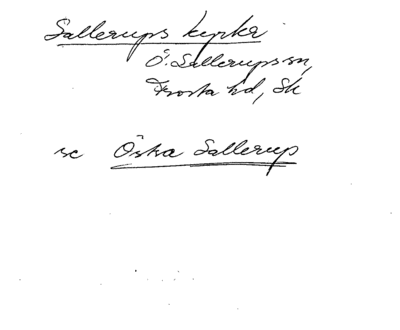 Sallerups kyrka
Ö. Sallerups sn,
Frosta hd, Sk
se Östra Sallerup